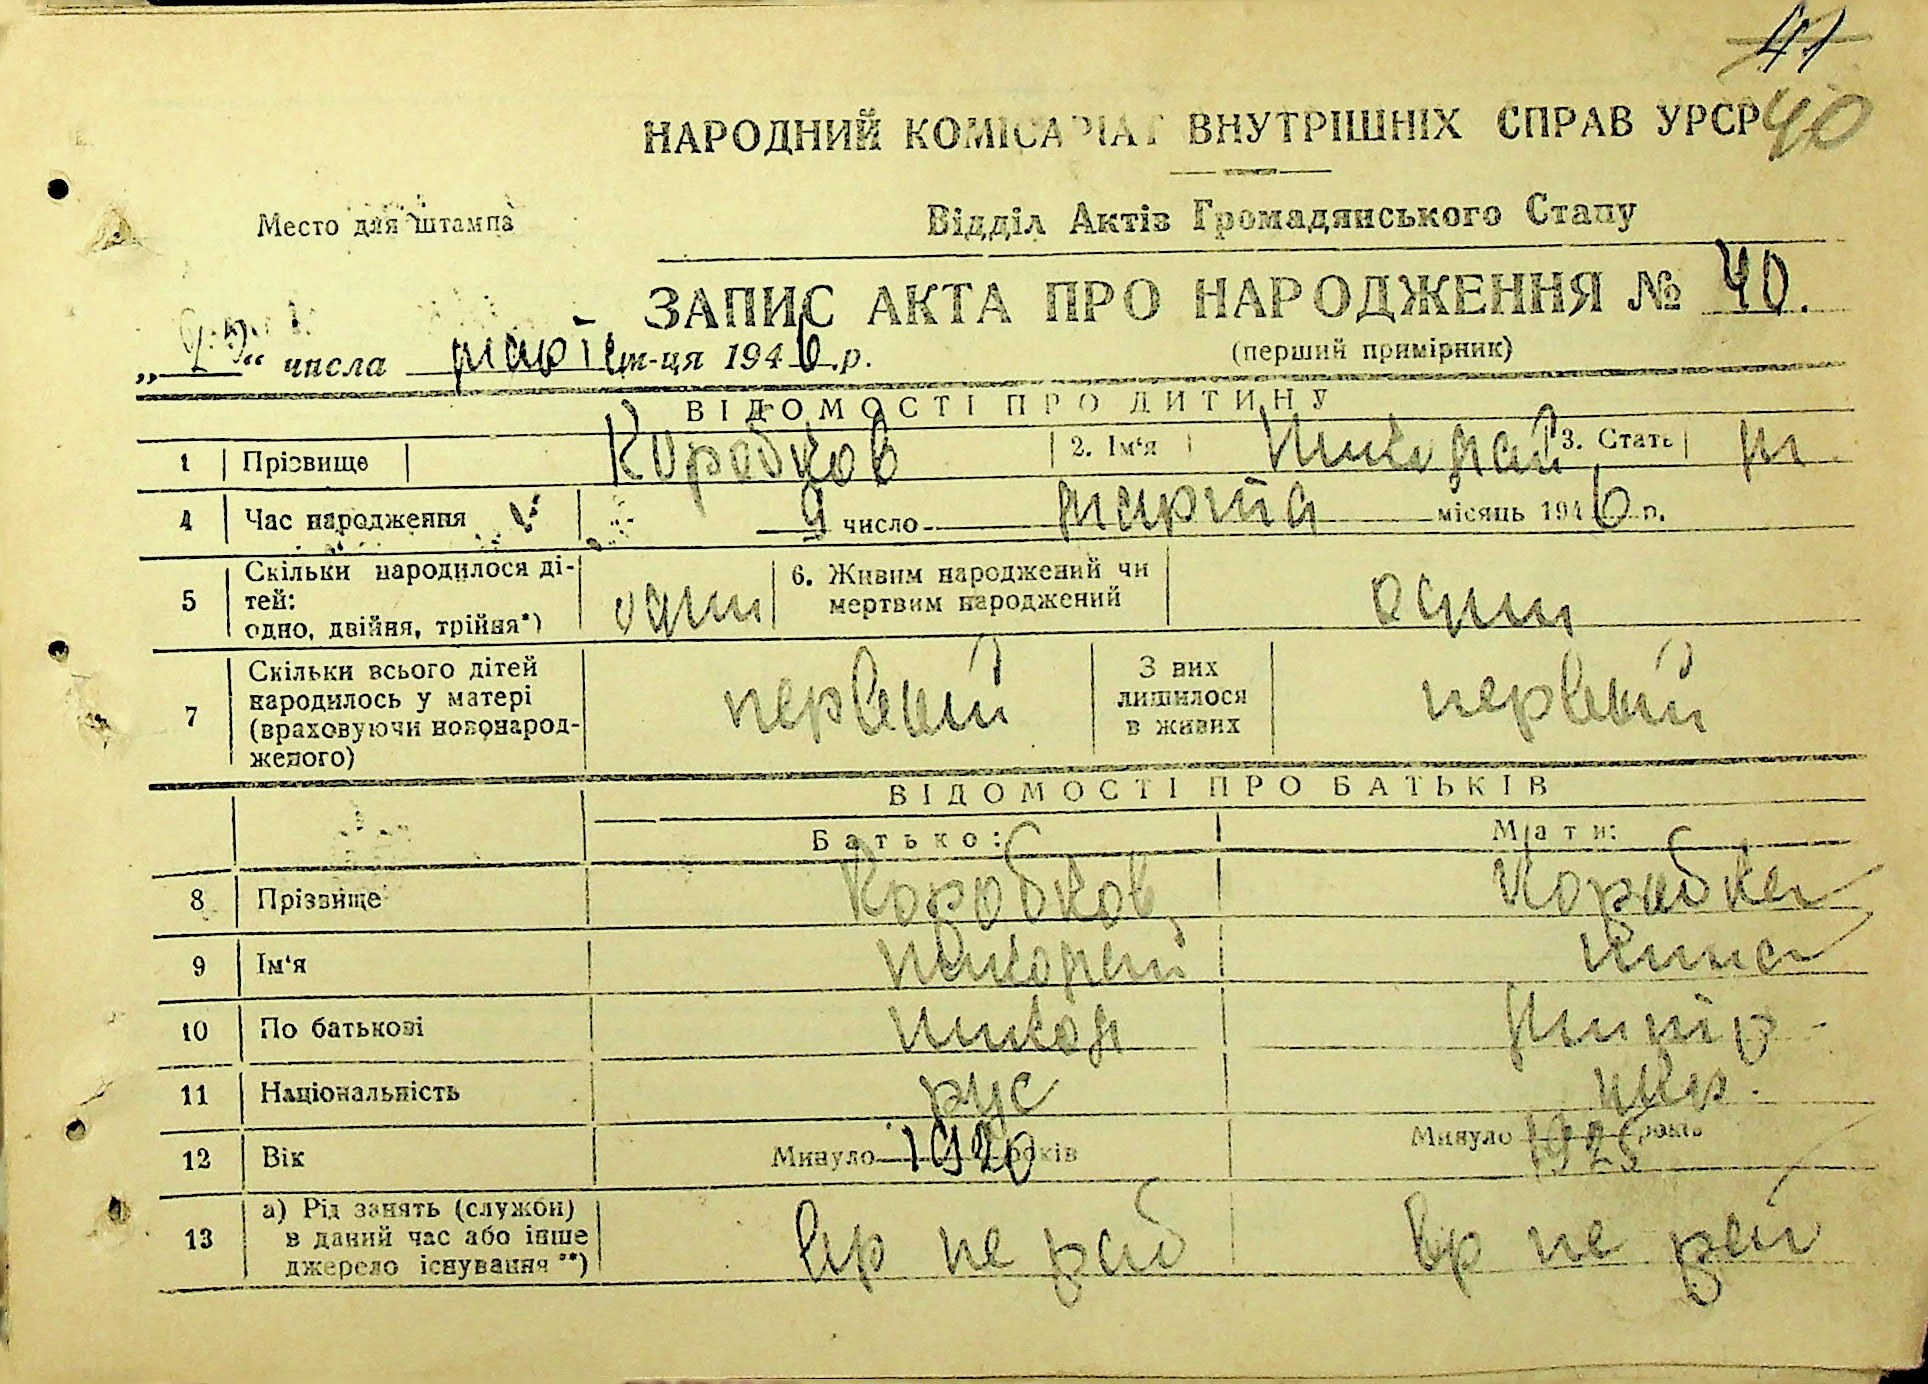 41
40
НАРОДНИЙ КОМІСАРІАТ ВНУТРІШНІХ СПРАВ УРСР
Место для штампа
Відділ Актів Громадянського Стану
ЗАПИС АКТА ПРО НАРОДЖЕННЯ № 40.
„25“ числа марта м-ця 1946 р.
(перший примірник)
ВІДОМОСТІ ПРО ДИТИНУ
1 Прізвище Коробков 2. Ім‘я Николай 3. Стать м.
4 Час народження 9 число марта місяць 1946 р.
5 Скільки народилося ді-
тей:
одно, двійня, трійня*) один
6. Живим народжений чи
мертвим народжений один
7 Скільки всього дітей
народилось у матері
(враховуючи новонарод-
женого) первый
З них
лишилося
в живих первый
ВІДОМОСТІ ПРО БАТЬКІВ
Батько: Мати:
8 Прізвище Коробков Коробка
9 Ім‘я Николай Нина
10 По батькові Никол
11 Національність рус укр.
12 Вік Минуло 1920 років Минуло 1925 років
13 а) Рід занять (служби)
в даний час або інше
джерело існування **) вр не раб вр не раб